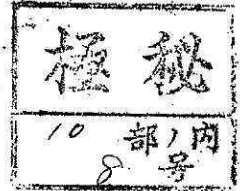 極秘
10部ノ内
8号